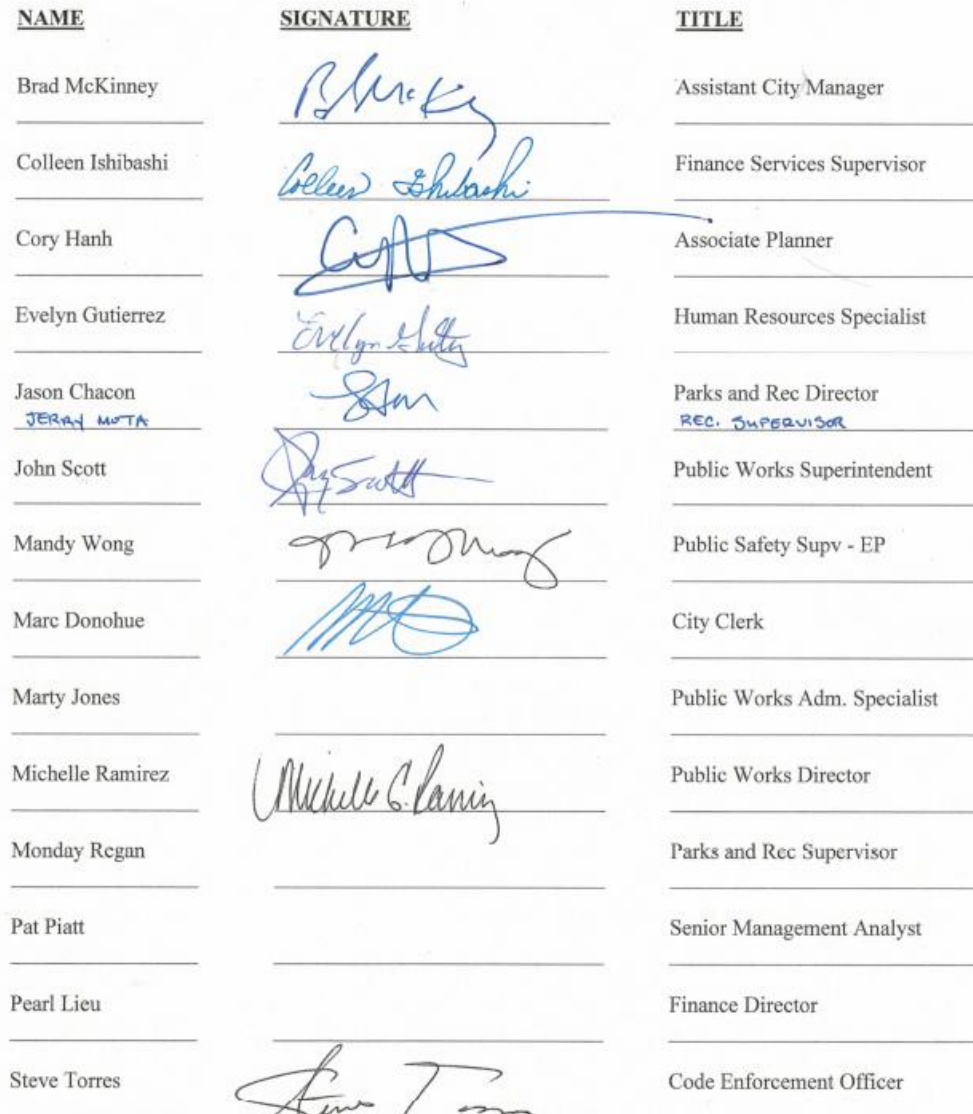 NAME SIGNATURE TITLE
Brad McKinney Assistant City Manager
Colleen Ishibashi Colleen Ishibashi Finance Services Supervisor
Cory Hanh Associate Planner
Evelyn Gutierrez Evelyn Human Resources Specialist
Jason Chacon Parks and Rec Director
JERRY MOTA REC. SUPERVISOR
John Scott Scott Public Works Superintendent
Mandy Wong Public Safety Supv - EP
Marc Donohue City Clerk
Marty Jones Public Works Adm. Specialist
Michelle Ramirez Michelle G. Ramirez Public Works Director
Monday Regan Parks and Rec Supervisor
Pat Piatt Senior Management Analyst
Pearl Lieu Finance Director
Steve Torres Code Enforcement Officer